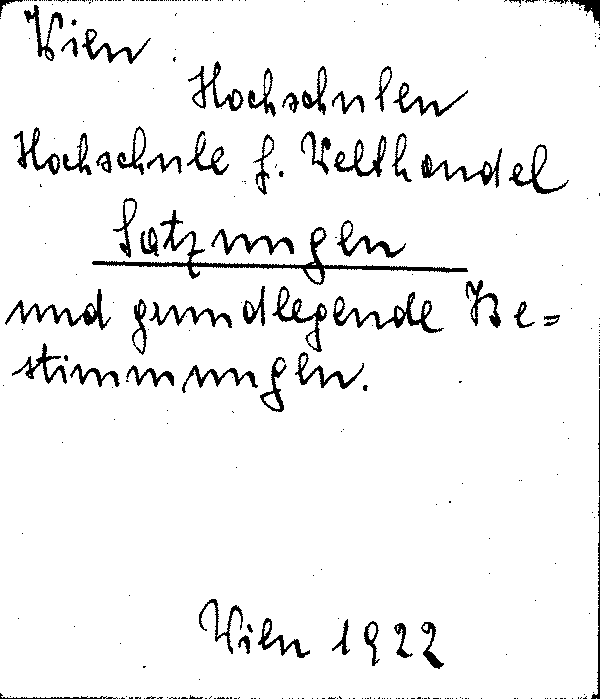 Wien
Hochschulen
Hochschule f. Welthandel
Satzungen
und grundlegende Be=
stimmungen.
Wien 1922